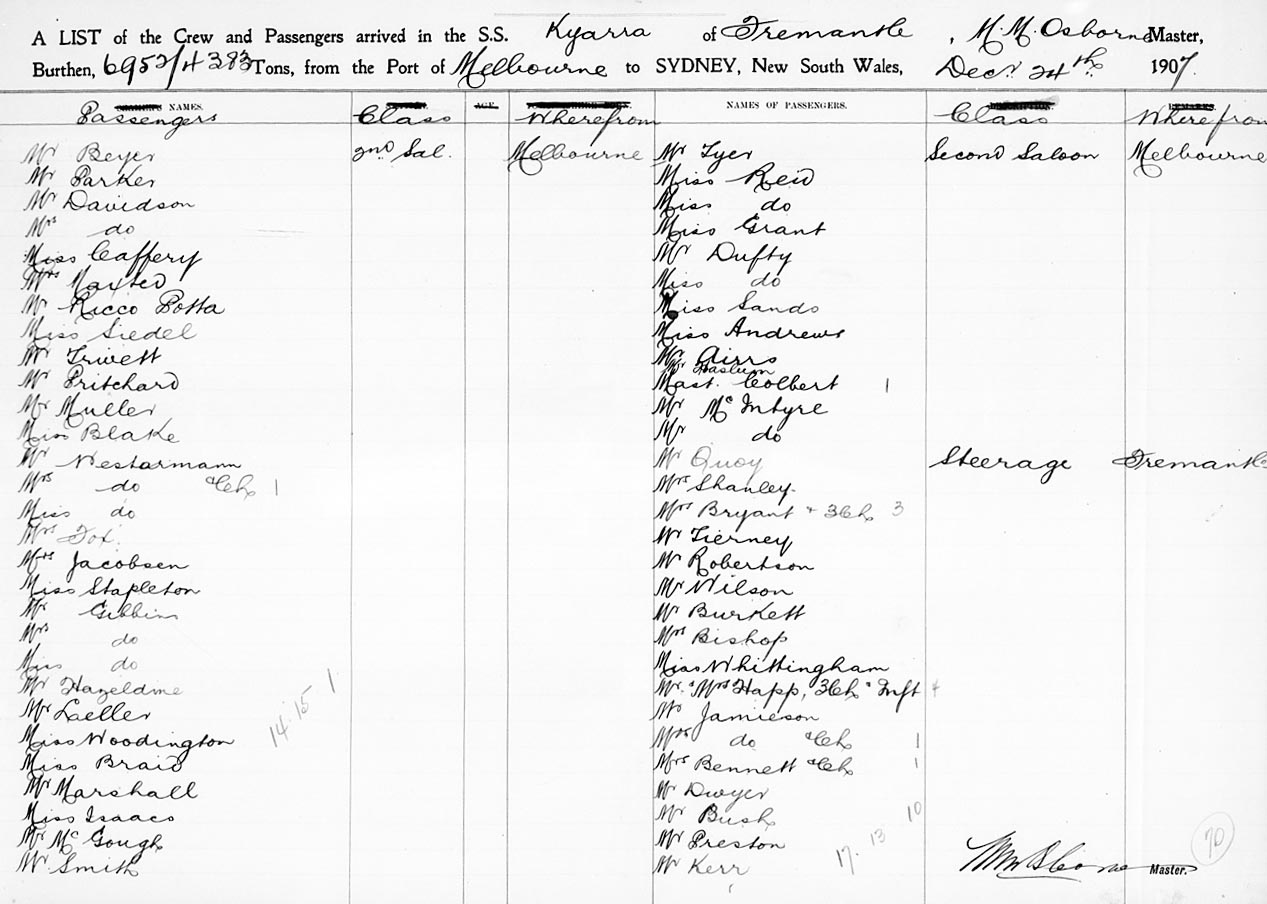 A LIST of the Crew and Passengers arrived in the S.S. Kyarra of Fremantle, M. M. Osborne Master,
Burthen, 6952/4383 Tons, from the Port of Melbourne to SYDNEY, New South Wales, Decr 24th 1907.
NAMES. AGE. NAMES OF PASSENGERS.
Passengers Class Wherefrom Class Wherefrom
Mr Beyer 2nd Sal. Melbourne
Mr Parker
Mr Davidson
Mrs do
Miss Caffery
Mrs Maxted
Mr Ricco Botta
Miss Siedel
Mr Trivett
Mr Pritchard
Mr Muller
Miss Blake
Mr Westarmann
Mrs do & Ch 1
Miss do
Mrs Fox.
Mrs Jacobsen
Miss Stapleton
Mr Gibbins
Mrs do
Miss do
Mr Hazeldine
Mr Laeller
Miss Woodington
Miss Braid
Mr Marshall
Miss Isaacs
Mr McGough
Mr Smith
14. 15 1
Mr Tyer Second Saloon Melbourne
Miss Reid
Miss do
Miss Grant
Mr Dufty
Miss do
Miss Sands
Miss Andrews
Mr Airrs
Mr Haslum
Mast. Colbert 1
Mr McIntyre
Mr do
Mr Quoy Steerage Fremantle
Mrs Shanley
Mrs Bryant + 3Ch 3
Mr Tierney
Mr Robertson
Mr Wilson
Mr Burkett
Mrs Bishop
Miss Whittingham
Mr & Mrs Happ, 3Ch & Inft 4
Mr Jamieson
Mrs do & Ch 1
Mrs Bennett & Ch 1
Mr Dwyer
Mr Bush 10
Mr Preston
Mr Kerr 17. 13
M M Osborne Master.
70